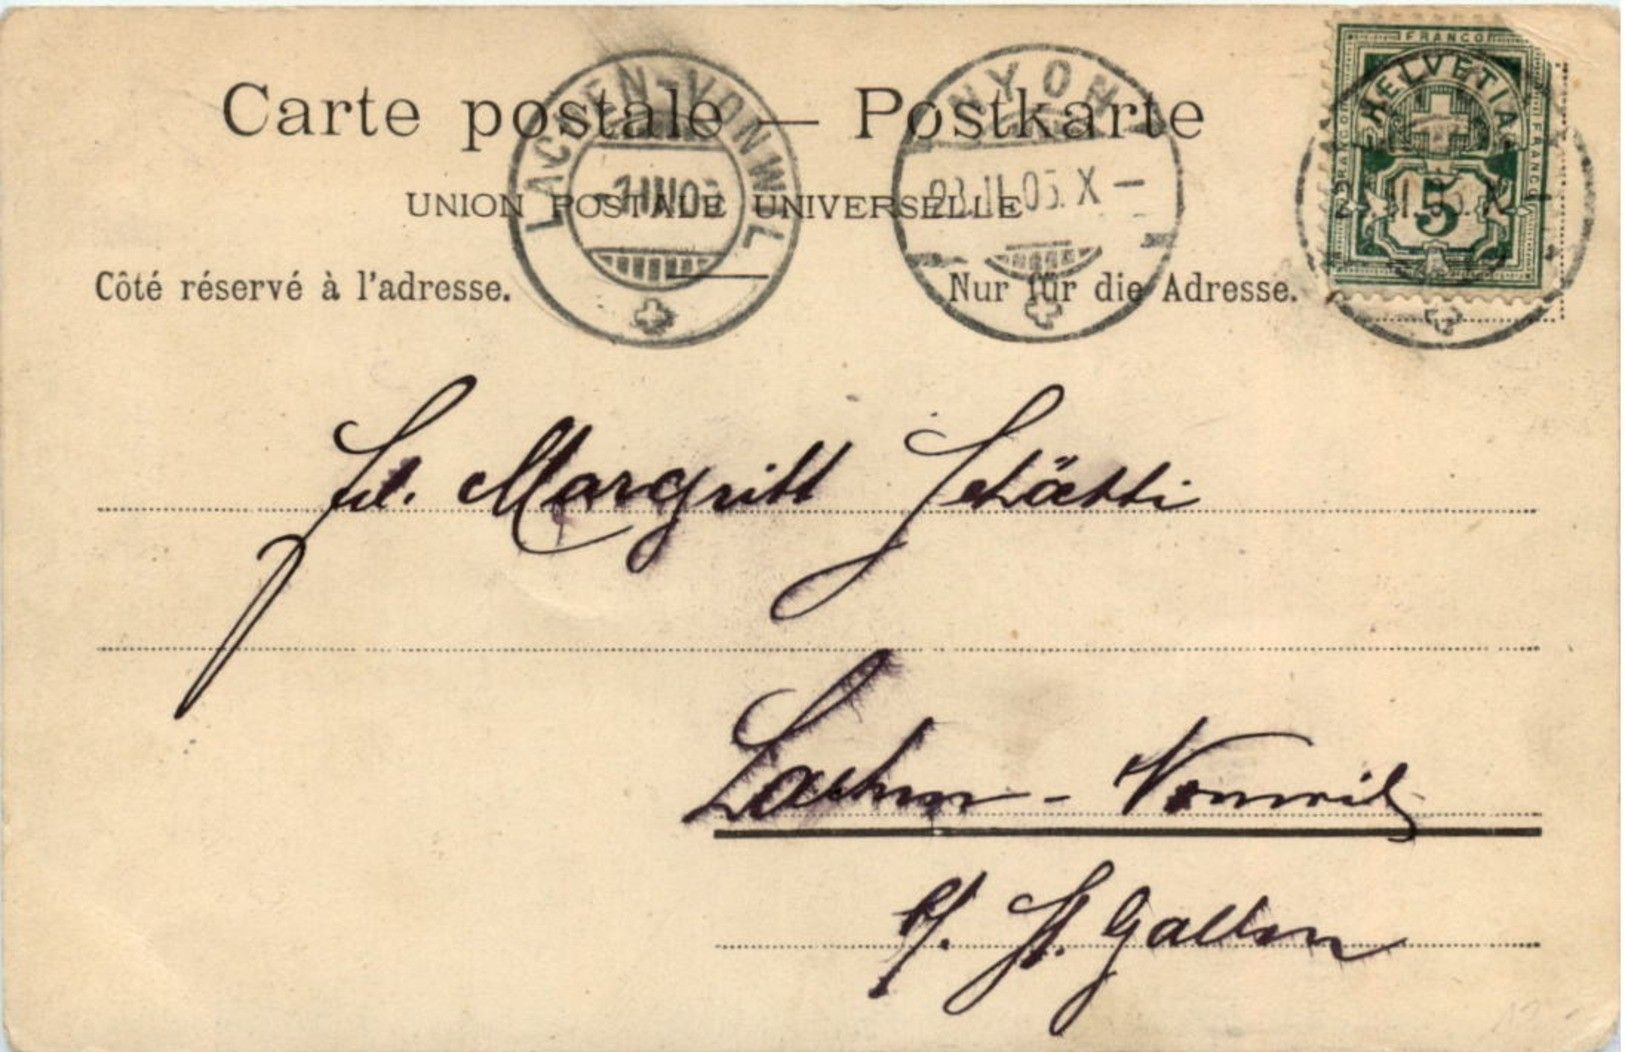 Carte postale — Postkarte
UNION POSTALE UNIVERSELLE
Côté réservé à l'adresse.
Nur für die Adresse.
LACHEN-VONWIL
NYON
FRANCO
HELVETIA
5
Frl. Margritt Schätti
Lachen - Vonwil
b/. St. Gallen